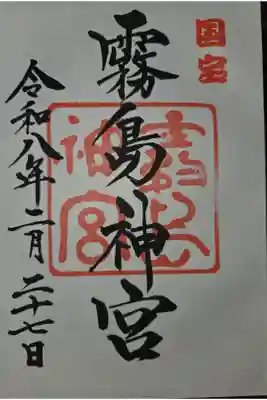 国宝
霧島神宮
令和八年二月二十七日